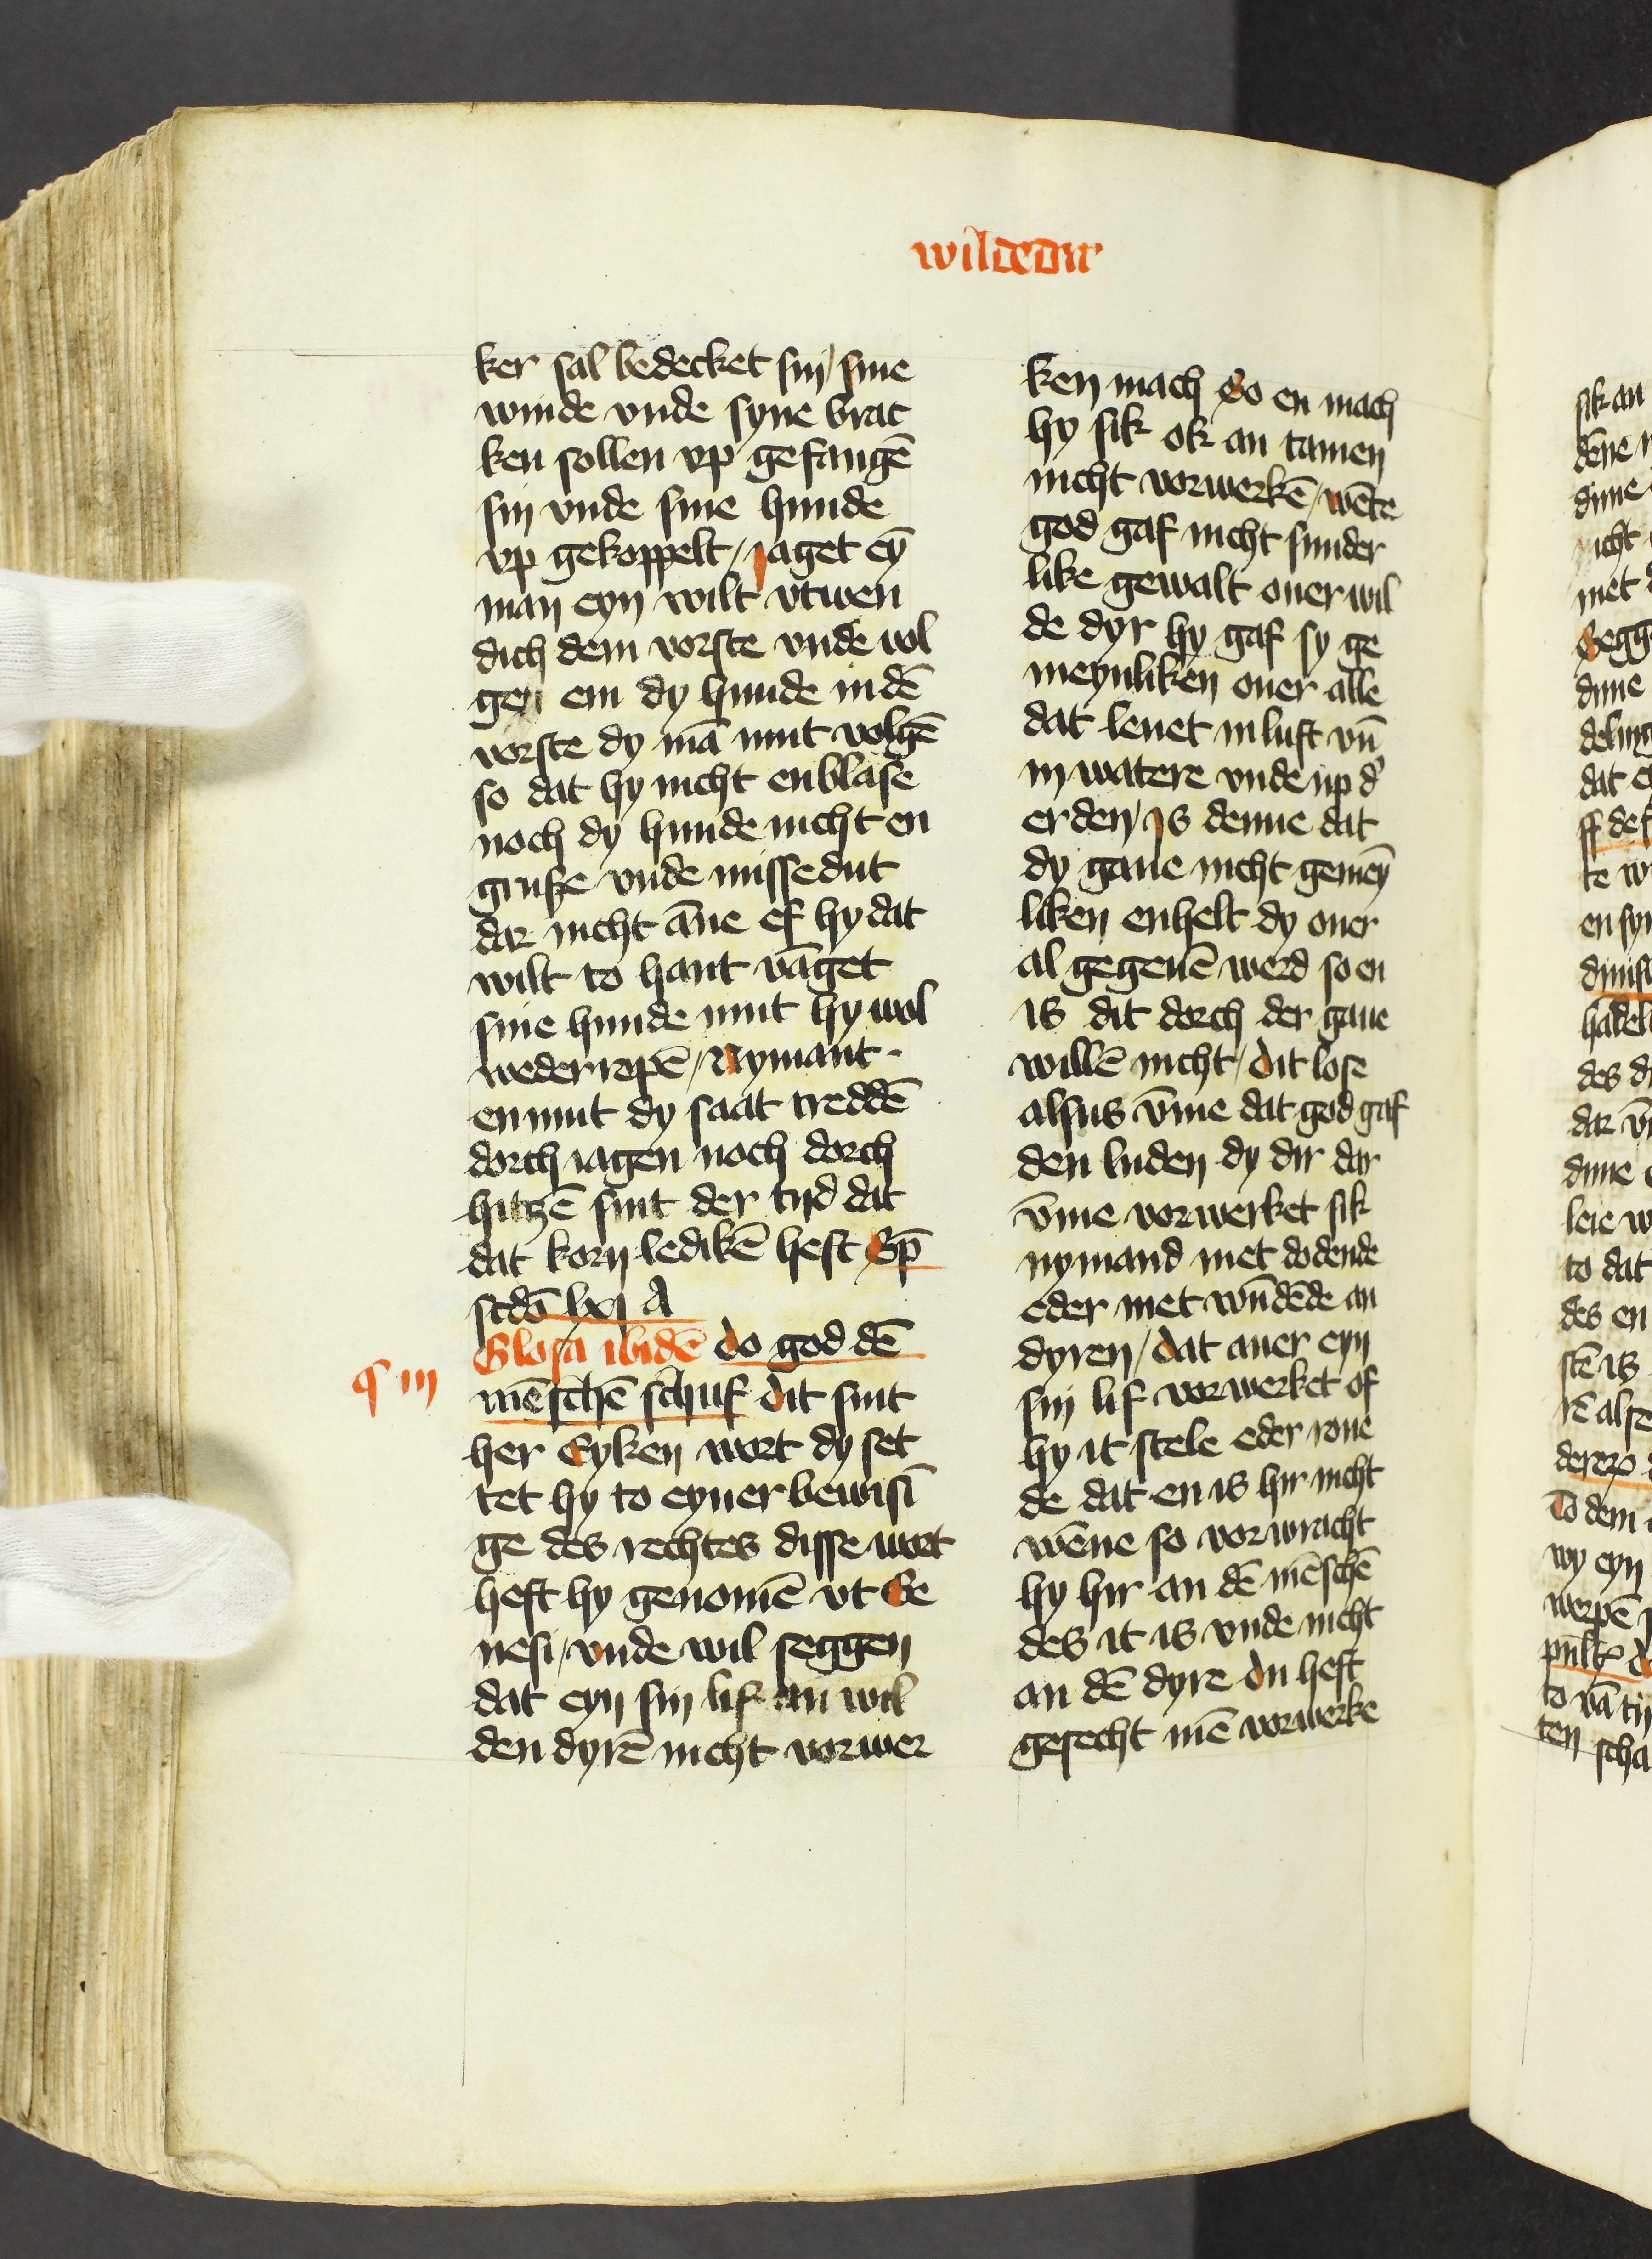 wildedir
ker sal bedecket sin / sine
winde vnde syne brac
ken sollen vp gefangē
sin vnde sine hunde
vp gekoppelt / jaget eyn̄
man eyn wilt vtwen
dich dem vorste vnde vol
gen em dy hunde in dē
vorste dy mā mut volgē
so dat hy nicht enblase
noch dy hunde nicht en
grutze vnde missedut
dar nicht āne ef hy dat
wilt to hant vāget
sine hunde mut hy wol
wederropē / Nymant
enmut dy saat treddē
dorch iagen noch dorch
hitzē sint der tijd dat
dat korn ledikē heft Sp̄
scdō lxj A
¶ iij Glosa ibidē do god dē
mēschē schuf Dit sint
her Eyken wort dy set
tet hy to eyner bewisī
ge des rechtes disse wort
heft hy genomē vt Ge
nesi / vnde wil seggen
dat eyn sin lif an wil
den dyrē nicht vorwer
ken mach So en mach
hy sik ok an tamen
nicht vorwerkē / wēte
god gaf nicht sunder
like gewalt ouer wil
de dyr hy gaf sy ge
meynliken ouer alle
dat leuet in luft vn̄
in watere vnde up d'
erden / js denne dat
dy gaue nicht gemeȳ
liken enhelt dy ouer
al gegeuē werd so en
is dit dorch der gaue
willē nicht / Dit lose
alsus v̄me dat god gaf
den luden dy dir dar
v̄me vorwerket sik
nymand met dodende
eder met wūdēde an
dyren / dat auer eyn
sin lif vorwerket of
hy it stele eder roue
de dat en is hir nicht
wēne so vorwracht
hy hir an dē mēschē
des it is vnde nicht
an dē dyre Du heft
gesecht mē vorwerke
sik an
dēne
dime
nicht
met
Segg
dime
deling
dat
te
en
des
dar
dime
leie
to dat
des en
stē is
rē alse
to dem
wy eyn
werpē
ten scha